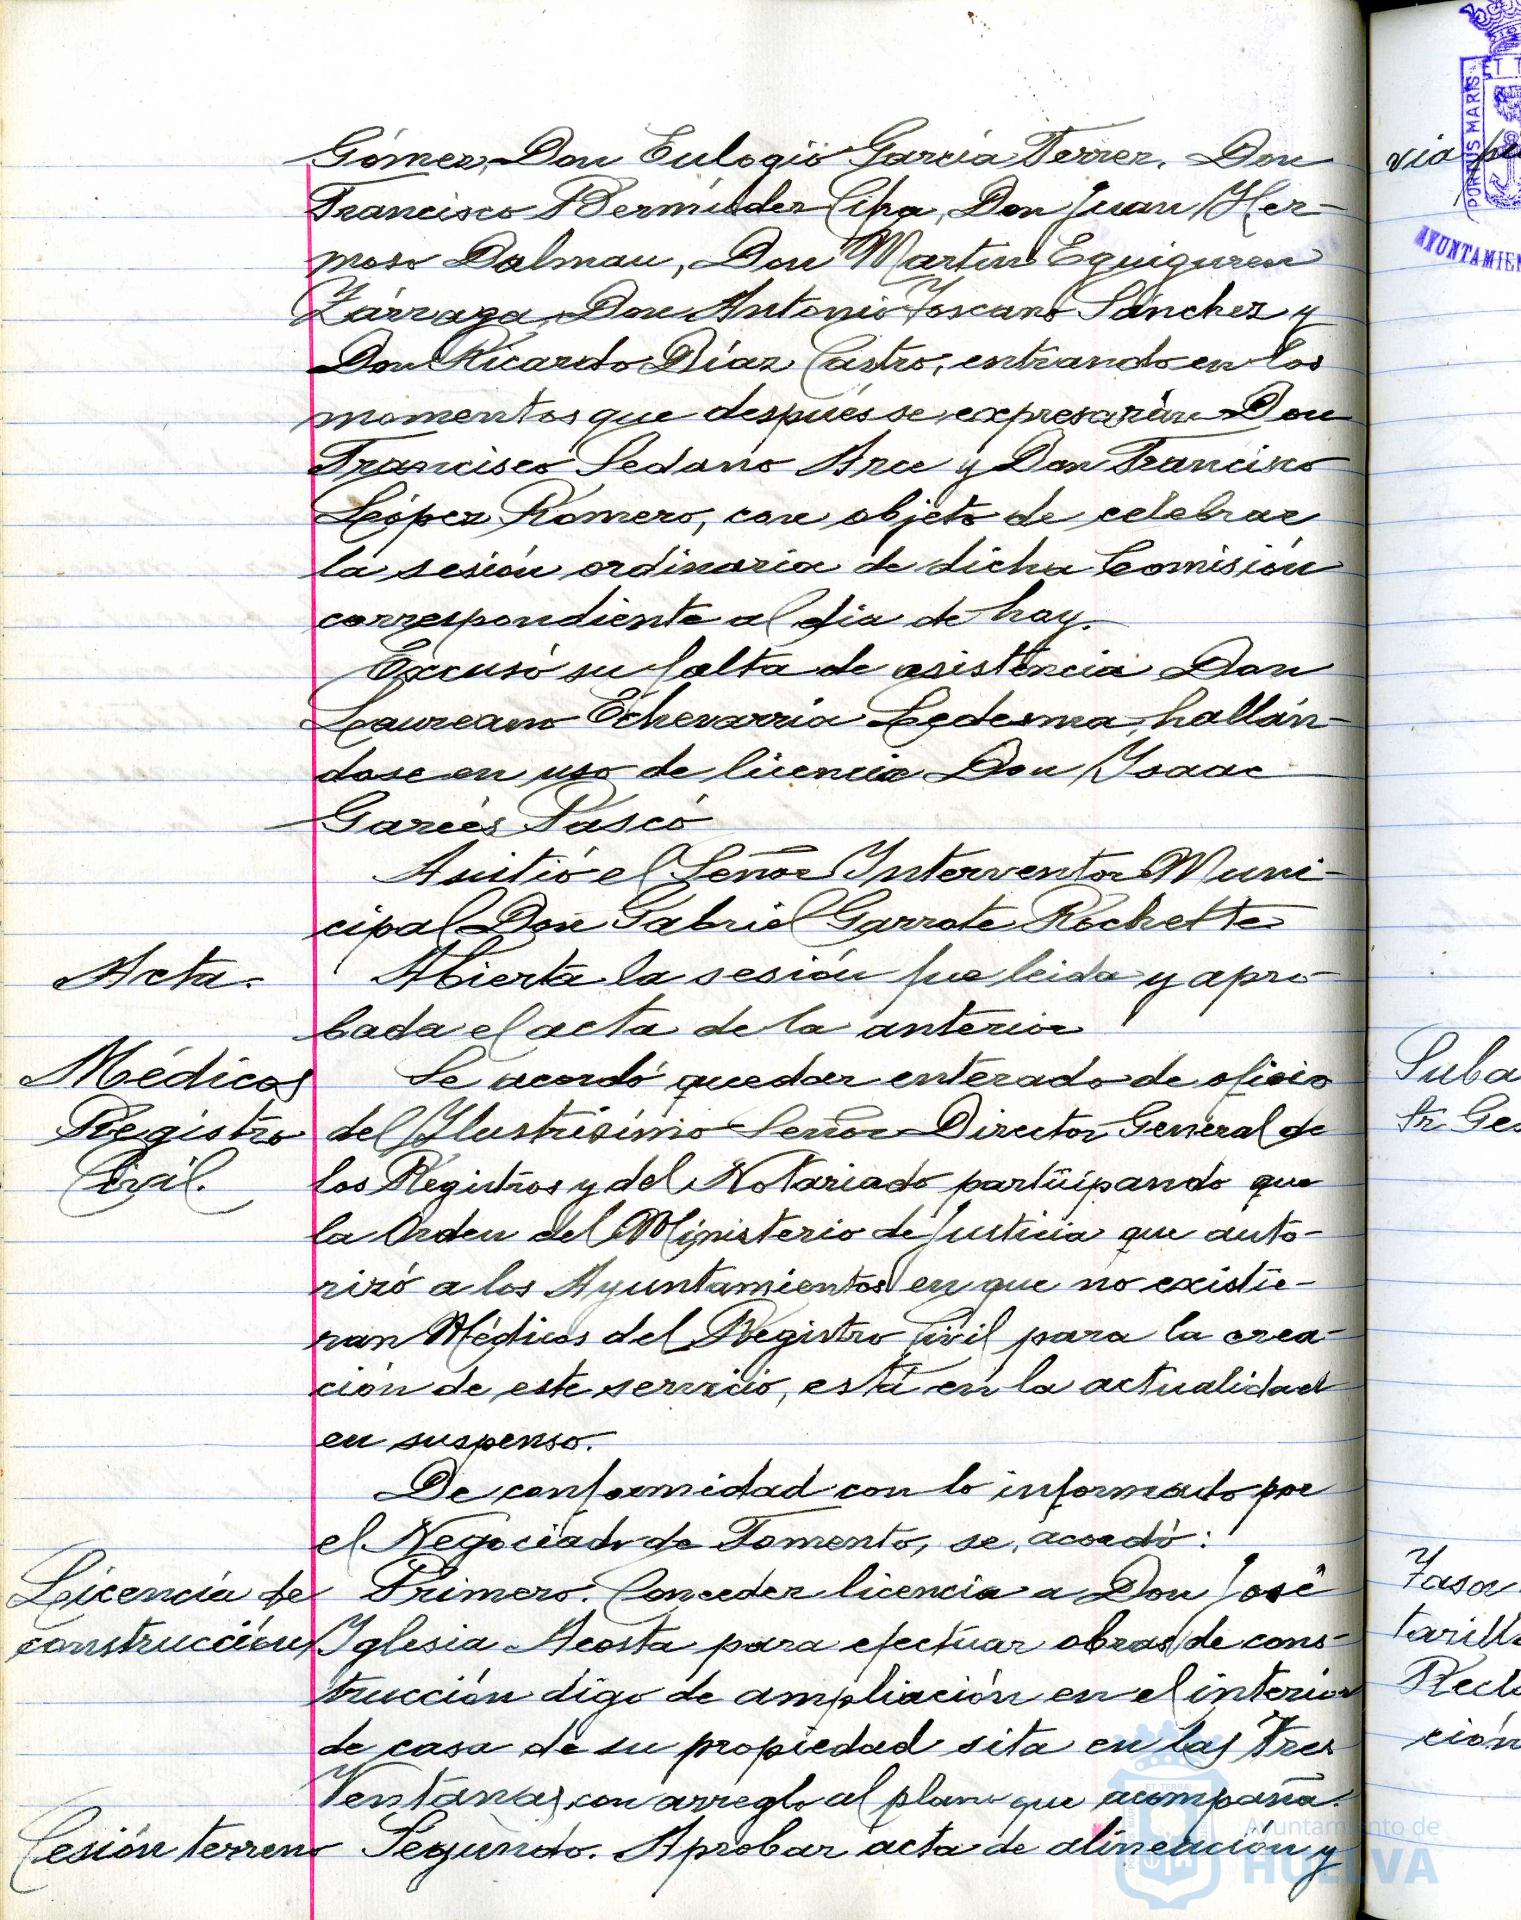 Gómez, Don Eulogio García Ferrer, Don
Francisco Bermúdez Cipa, Don Juan Her-
moso Dalmau, Don Martín Eguiguren
Zárraga, Don Antonio Toscano Sánchez y
Don Ricardo Díaz Castro, entrando en los
momentos que después se expresarán Don
Francisco Sedano Arce y Don Francisco
López Romero, con objeto de celebrar
la sesión ordinaria de dicha Comisión
correspondiente al dia de hoy.
Excusó su falta de asistencia Don
Laureano Echevarria Ledesma, hallán-
dose en uso de licencia Don Ysaac
Garcés Pascó
Asistió el Señor Interventor Muni-
cipal Don Gabriel Garrote Rochette
Acta. Abierta la sesión fue leida y apro-
bada el acta de la anterior
Médicos Se acordó quedar enterado de oficio
Registro del Ylustrísimo Señor Director General de
Civil. los Registros y del Notariado participando que
la Orden del Ministerio de Justicia que auto-
rizó a los Ayuntamientos en que no existie-
ran Médicos del Registro Civil para la crea-
ción de este servicio, está en la actualidad
en suspenso.
De conformidad con lo informado por
el Negociado de Fomento, se acordó:
Licencia de Primero. Conceder licencia a Don José
construcción Yglesia Acosta para efectuar obras de cons-
trucción digo de ampliación en el interior
de casa de su propiedad sita en las Tres
Ventanas, con arreglo al plano que acompaña.
Cesión terreno Segundo. Aprobar acta de alineación y
PORTUS MARIS
ET T
AYUNTAMIEN
via
Suba
tr Ges
Tasa
tarill
Recla
ción
ET TERRAE
Ayuntamiento de
HUELVA